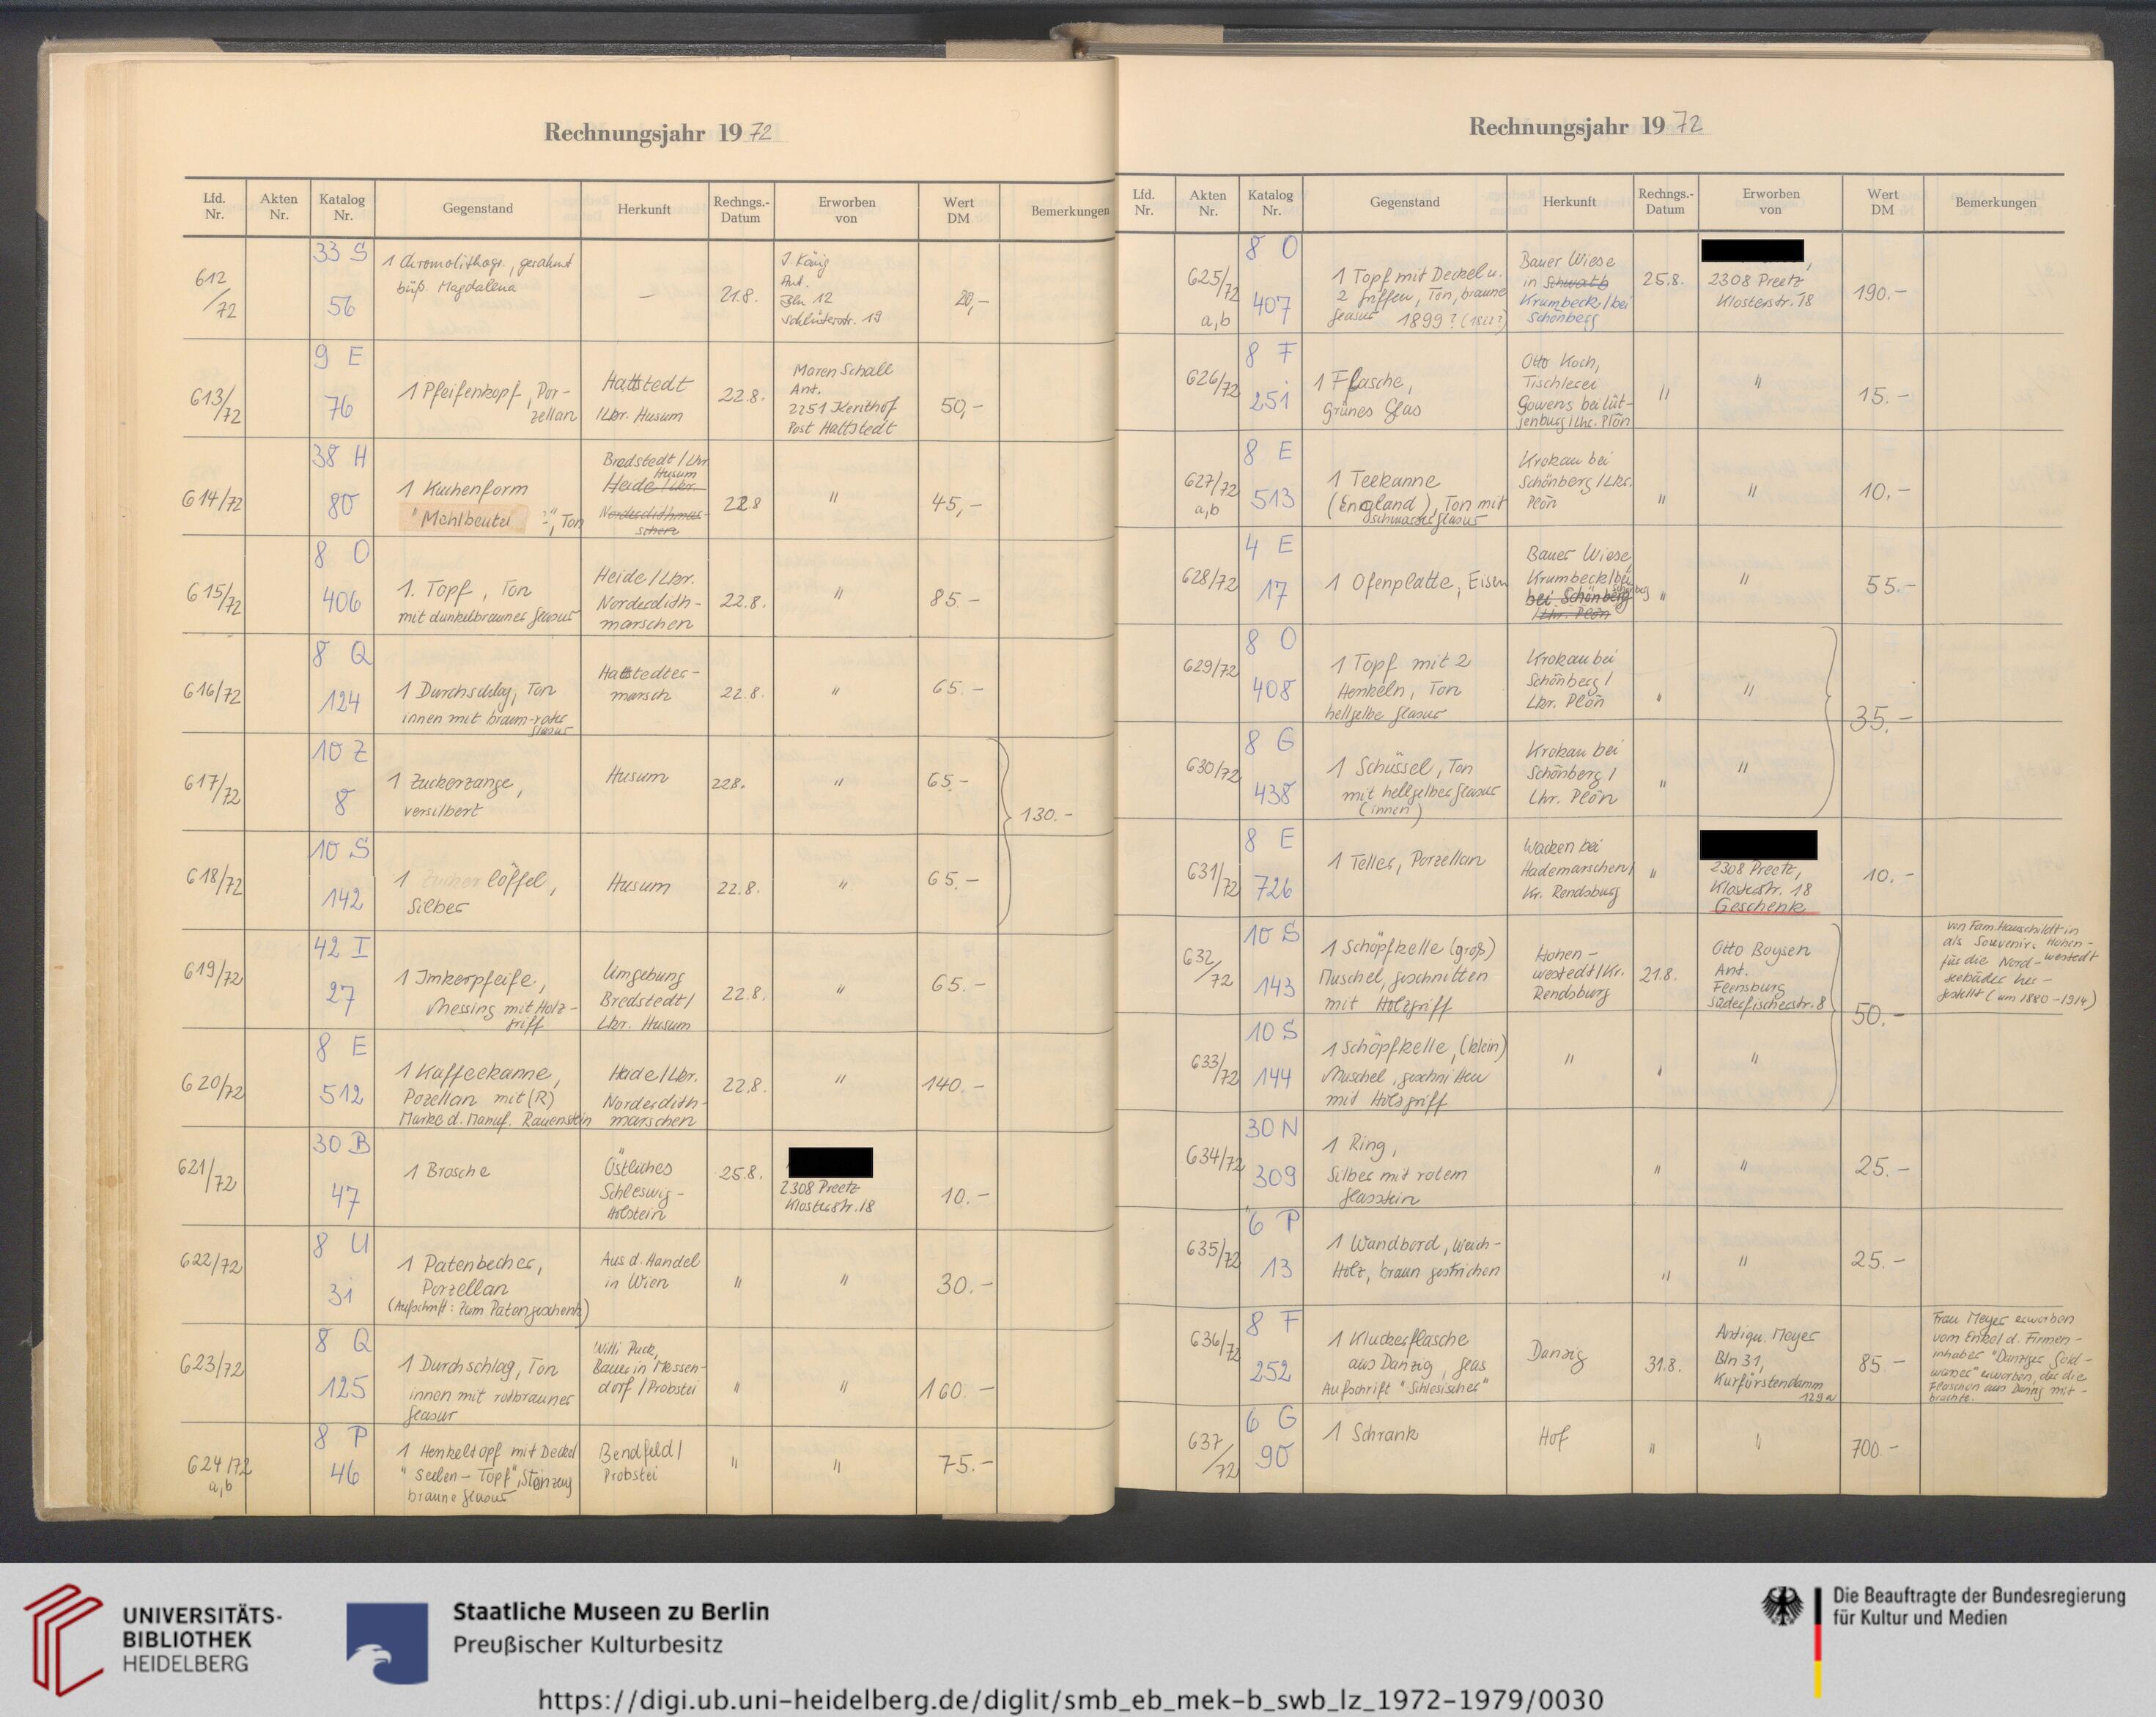 Rechnungsjahr 1972
Lfd. Nr.
Akten Nr.
Katalog Nr.
Gegenstand
Herkunft
Rechngs.-Datum
Erworben von
Wert DM
Bemerkungen
612/72
33 S
56
1 Chromolithogr., gerahmt
büß. Magdalena
—
21.8.
J. König
Ant.
Bln 12
Schlüterstr. 19
20,-
613/72
9 E
76
1 Pfeifenkopf, Por-
zellan
Hattstedt
/Lkr. Husum
22.8.
Maren Schall
Ant.
Post Hattstedt
50,-
614/72
38 H
80
1 Kuchenform
"Mehlbeutel", Ton
Bredstedt/Lkr.
Husum
Heide/Lkr.
Norderdithmar-
schen
22.8
"
45,-
615/72
8 O
406
1. Topf, Ton
mit dunkelbrauner Glasur
Heide/Lkr.
Norderdith-
marschen
22.8.
"
85.-
616/72
8 Q
124
1 Durchschlag, Ton
innen mit braun-roter
Glasur
Hattstedter-
marsch
22.8.
"
65.-
617/72
10 Z
8
1 Zuckerzange,
versilbert
Husum
22.8.
"
65.-
130.-
618/72
10 S
142
1 Zuckerlöffel,
Silber
Husum
22.8.
"
65.-
619/72
42 I
27
1 Imkerpfeife,
Messing mit Holz-
griff
Umgebung
Bredstedt/
Lkr. Husum
22.8.
"
65.-
620/72
8 E
512
1 Kaffeekanne,
Pozellan mit (R)
Marke d. Manuf. Rauenstein
Heide/Lkr.
Norderdith-
marschen
22.8.
"
140.-
621/72
30 B
47
1 Brosche
Östliches
Schleswig-
Holstein
25.8.
2308 Preetz
Klosterstr. 18
10.-
622/72
8 U
31
1 Patenbecher,
Porzellan
(Aufschrift: Zum Patengeschenk)
Aus d. Handel
in Wien
"
"
30.-
623/72
8 Q
125
1 Durchschlag, Ton
innen mit rotbrauner
Glasur
Willi Puck,
Bauer in Fiessen-
dorf/Probstei
"
"
160.-
624/72
a,b
8 P
46
1 Henkeltopf mit Deckel
"Seelen-Topf", Steinzeug
braune Glasur
Bendfeld/
Probstei
"
"
75.-
Rechnungsjahr 1972
Lfd. Nr.
Akten Nr.
Katalog Nr.
Gegenstand
Herkunft
Rechngs.-Datum
Erworben von
Wert DM
Bemerkungen
625/72
a,b
8 O
407
1 Topf mit Deckel u.
2 Griffen, Ton, braune
Glasur 1899? (1822?)
Bauer Wiese
in
Krumbeck/bei
Schönberg
25.8.
2308 Preetz
Klosterstr. 18
190.-
626/72
8 F
251
1 Flasche,
grünes Glas
Otto Koch,
Tischlerei
Gowens bei Lüt-
jenburg/Lkr. Plön
"
"
15.-
627/72
a,b
8 E
513
1 Teekanne
(England), Ton mit
schwarzer Glasur
Krokau bei
Schönberg/Lkr.
Plön
"
"
10.-
628/72
4 E
17
1 Ofenplatte, Eisen
Bauer Wiese,
Krumbeck/bei
Schönberg
bei Schönberg
/Lkr. Plön
"
"
55.-
629/72
8 O
408
1 Topf mit 2
Henkeln, Ton
hellgelbe Glasur
Krokau bei
Schönberg/
Lkr. Plön
"
"
35.-
630/72
8 G
438
1 Schüssel, Ton
mit hellgelber Glasur
(innen)
Krokau bei
Schönberg/
Lkr. Plön
"
"
631/72
8 E
726
1 Teller, Porzellan
Wacken bei
Hademarschen/
Kr. Rendsburg
"
2308 Preetz,
Klosterstr. 18
Geschenk
10.-
632/72
10 S
143
1 Schöpfkelle (groß)
Muschel, geschnitten
mit Holzgriff
Hohen-
westedt/Kr.
Rendsburg
21.8.
Otto Boysen
Ant.
Flensburg
Süderfischerstr. 8
50.-
von Fam. Hauschildt in
als Souvenirs Hohen-
für die Nord- westedt
seebäder her-
gestellt (um 1880-1914)
633/72
10 S
144
1 Schöpfkelle, (klein)
Muschel, geschnitten
mit Holzgriff
"
"
"
634/72
30 N
309
1 Ring,
Silber mit rotem
Glasstein
"
"
25.-
635/72
6 P
13
1 Wandbord, Weich-
Holz, braun gestrichen
"
"
25.-
636/72
8 F
252
1 Kluckerflasche
aus Danzig, Glas
Aufschrift "Schlesischer"
Danzig
31.8.
Antiqu. Meyer
Bln 31,
Kurfürstendamm
129a
85.-
Frau Meyer erworben
vom Enkel d. Firmen-
inhaber "Danziger Gold-
wasser" erworben, der die
Flaschen aus Danzig mit-
brachte.
637/72
6 G
90
1 Schrank
Hof
"
"
700.-
UNIVERSITÄTS-
BIBLIOTHEK
HEIDELBERG
Staatliche Museen zu Berlin
Preußischer Kulturbesitz
Die Beauftragte der Bundesregierung
für Kultur und Medien
https://digi.ub.uni-heidelberg.de/diglit/smb_eb_mek-b_swb_lz_1972-1979/0030